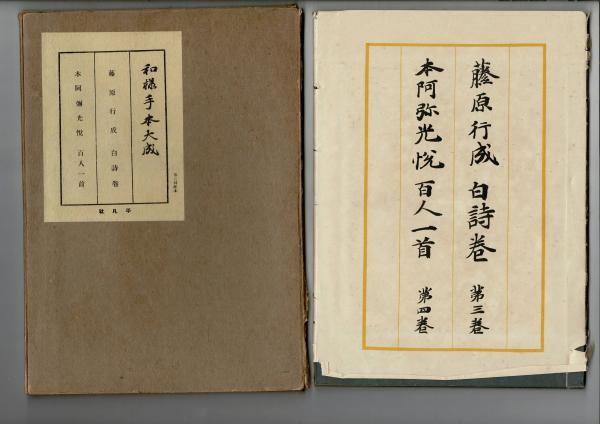 和樣手本大成
藤原行成 白詩卷
本阿彌光悅 百人一首
平凡社
藤原行成 白詩卷 第三卷
本阿弥光悅 百人一首 第四卷